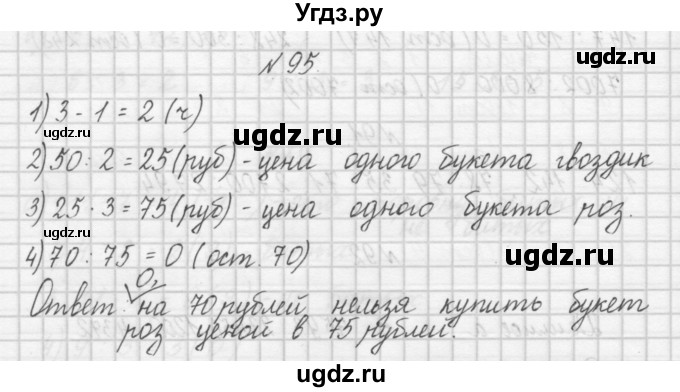 Угдз.ру
№ 95.
ugdz.ru ugdz.ru
1) 3 - 1 = 2 (ч)
ugdz.ru
2) 50 : 2 = 25 (руб) - цена одного букета гвоздик
ugdz.ru
3) 25 · 3 = 75 (руб) - цена одного букета роз.
ugdz.ru ugdz.ru
4) 70 : 75 = 0 (ост. 70)
0,
Ответ: на 70 рублей нельзя купить букет
роз ценой в 75 рублей.
ugdz.ru ugdz.ru
Угдз.ру